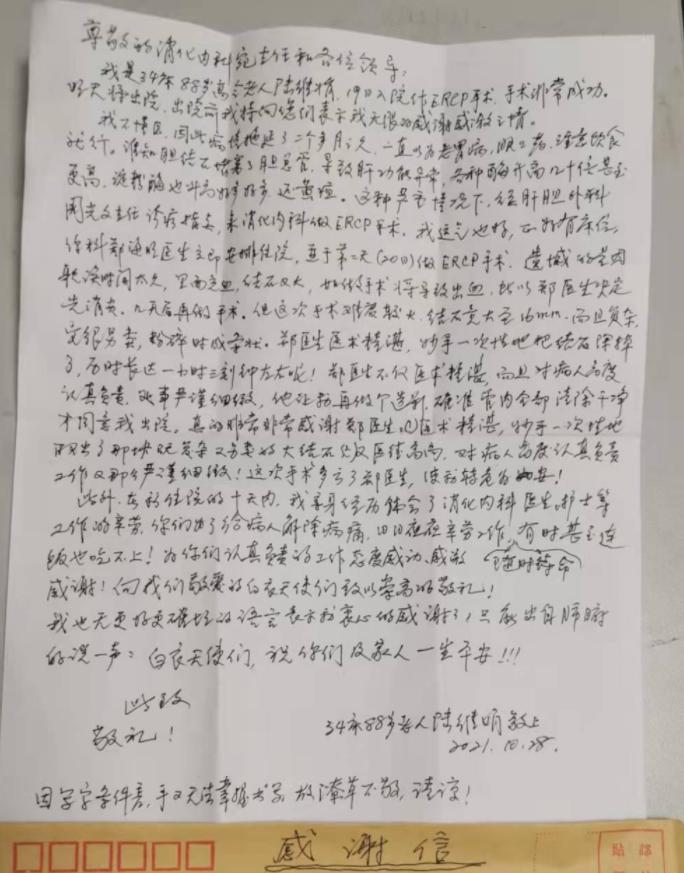 尊敬的消化内科宛主任和各位领导：
我是34床88岁高令老人陆维娟，19日入院作ERCP手术，手术非常成功。
明天将出院，出院前我特向您们表示我无限的感谢感激之情。
我不懂医，因此病情拖延了二个多月之久，一直以为老胃病，眼工药，注意饮食
就行。谁知胆结石堵塞了胆总管，导致肝功能异常，各种酶升高几十倍甚至
更高，淀粉酶也升高好多好多，还黄疸。这种严重情况下，经肝胆外科
周主任诊疗指点，来消化内科做ERCP手术。我运气也好，正好有床位，
你科郑医生立即安排住院，并于第二天(20日)做ERCP手术。遗憾的是因
耽误时间太久，里面充血，结石又大，如做手术将导致出血，所以郑医生决定
先消炎，几天后再做手术。但这次手术难度较大，结石竟大至16mm，而且复杂，
它很另类，粉碎时成条状。郑医生医术精湛，妙手一次性地把结石除掉
了，历时长达一小时三刻钟左右呢！郑医生不仅医术精湛，而且对病人高度
认真负责，处事严谨细微，他让我再做个造影，确准管内全部清除干净
才同意我出院，真的非常非常感谢郑医生，医术精湛，妙手一次性地
取出了那块既复杂又另类的大结石，不仅医德高尚，对病人高度认真负责
工作又那么严谨细微！这次手术多亏了郑医生，使我转危为安！
此外，在我住院的十天内，我亲身经历体会了消化内科医生、护士等
工作的辛劳，你们为了给病人解除病痛，日日夜夜辛劳工作，有时甚至连
饭也吃不上！为你们认真负责的工作态度感动、感激 随时待命
感谢！向我们敬爱的白衣天使们致以崇高的敬礼！
我也无更好更确切的语言表示我衷心的感谢了，只能出自肺腑
的说一声：白衣天使们，祝你们及家人一生平安！！！
此致
敬礼！
34床88岁老人陆维娟敬上
2021.10.28.
因写字条件差，手又无法掌握书写，故潦草不敬，请谅！
感谢信
贴 邮